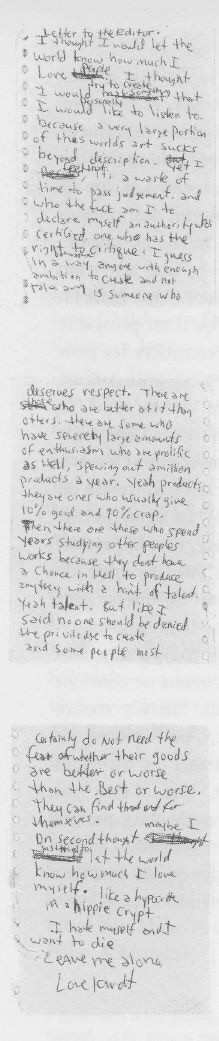 Letter to the Editor.
I thought I would let the
world know how much I
Love people I thought
I would try to create that
I would personally like to listen to.
because a very large portion
of this worlds art sucks
beyond description. yet, I
it's a waste of
time to pass judgement. and
who the fuck am I to
declare myself an authority
certified, one who has the
right to critique. I guess
in a way anyone with enough
ambition to create and not
take away is someone who
deserves respect. There are
those who are better at it than
others. there are some who
have severely large amounts
of enthusiasm who are prolific
as Hell, spewing out a million
products a year. yeah products
they are ones who usually give
10% good and 90% crap.
Then there are those who spend
years studying other peoples
works because they dont have
a chance in Hell to produce
anything with a hint of talent.
Yeah talent. But like I
said no one should be denied
the priviledge to create
and some people most
certainly do not need the
fear of whether their goods
are better or worse
than the Best or worse.
They can find that out for
themselves.
maybe I
On second thought
let the world
know how much I love
myself. like a hypocrite
in a hippie crypt
I hate myself and I
want to die
Leave me alone
Love